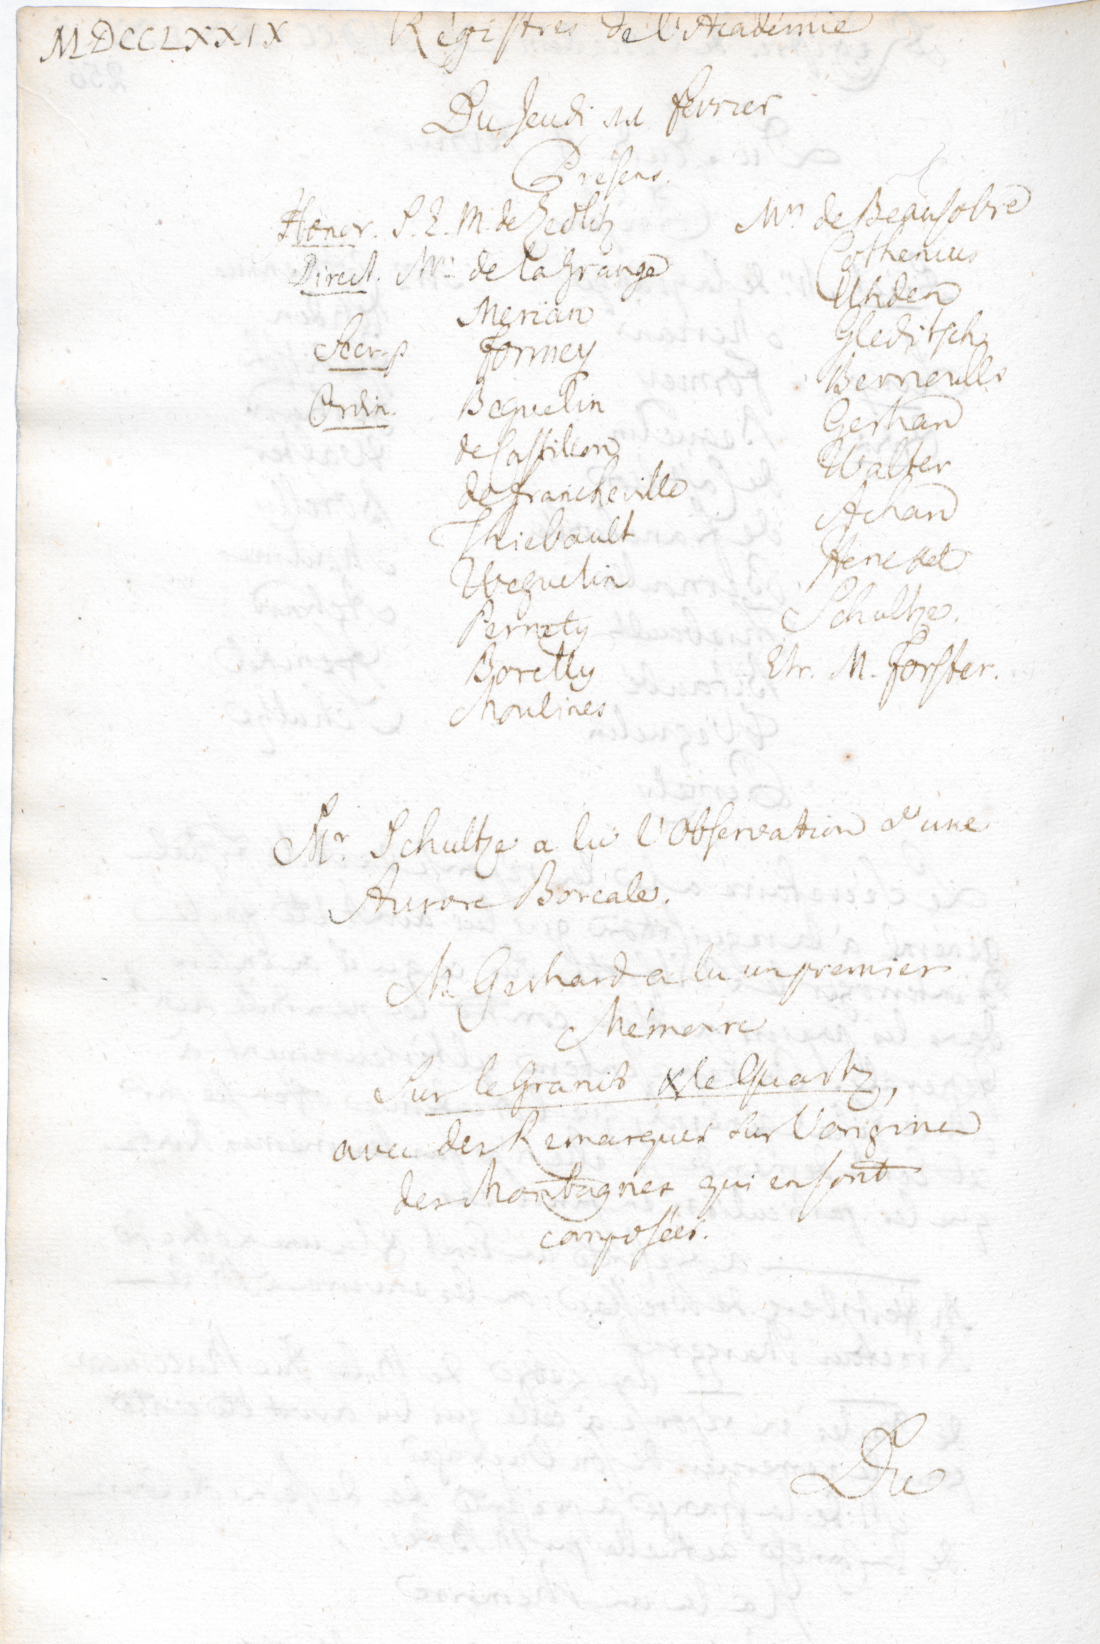 MDCCLXXIX Régistres de l'Académie
Du Jeudi 11 fevrier
Presens.
Honor. S. E. M. de Zedlitz
Direct. Mrs de la Grange
Merian
Secr. p Formey
Ordin. Beguelin
de Castillon
de Francheville
Thiebault
Weguelin
Pernety
Borelly
Moulines
Mrs de Beausobre
Cothenius
Uhden
Gleditsch
Bernoulli
Gerhard
Walter
Achard
Henckel
Schultze.
Etr. M. Forster.
Mr. Schultze a lu l'Observation d'une
Aurore Boréale.
Mr Gerhard a lu un premier
Mémoire
Sur le Granit & le Quartz,
avec des Remarques sur l'origine
des Montagnes qui en sont
composées.
Du